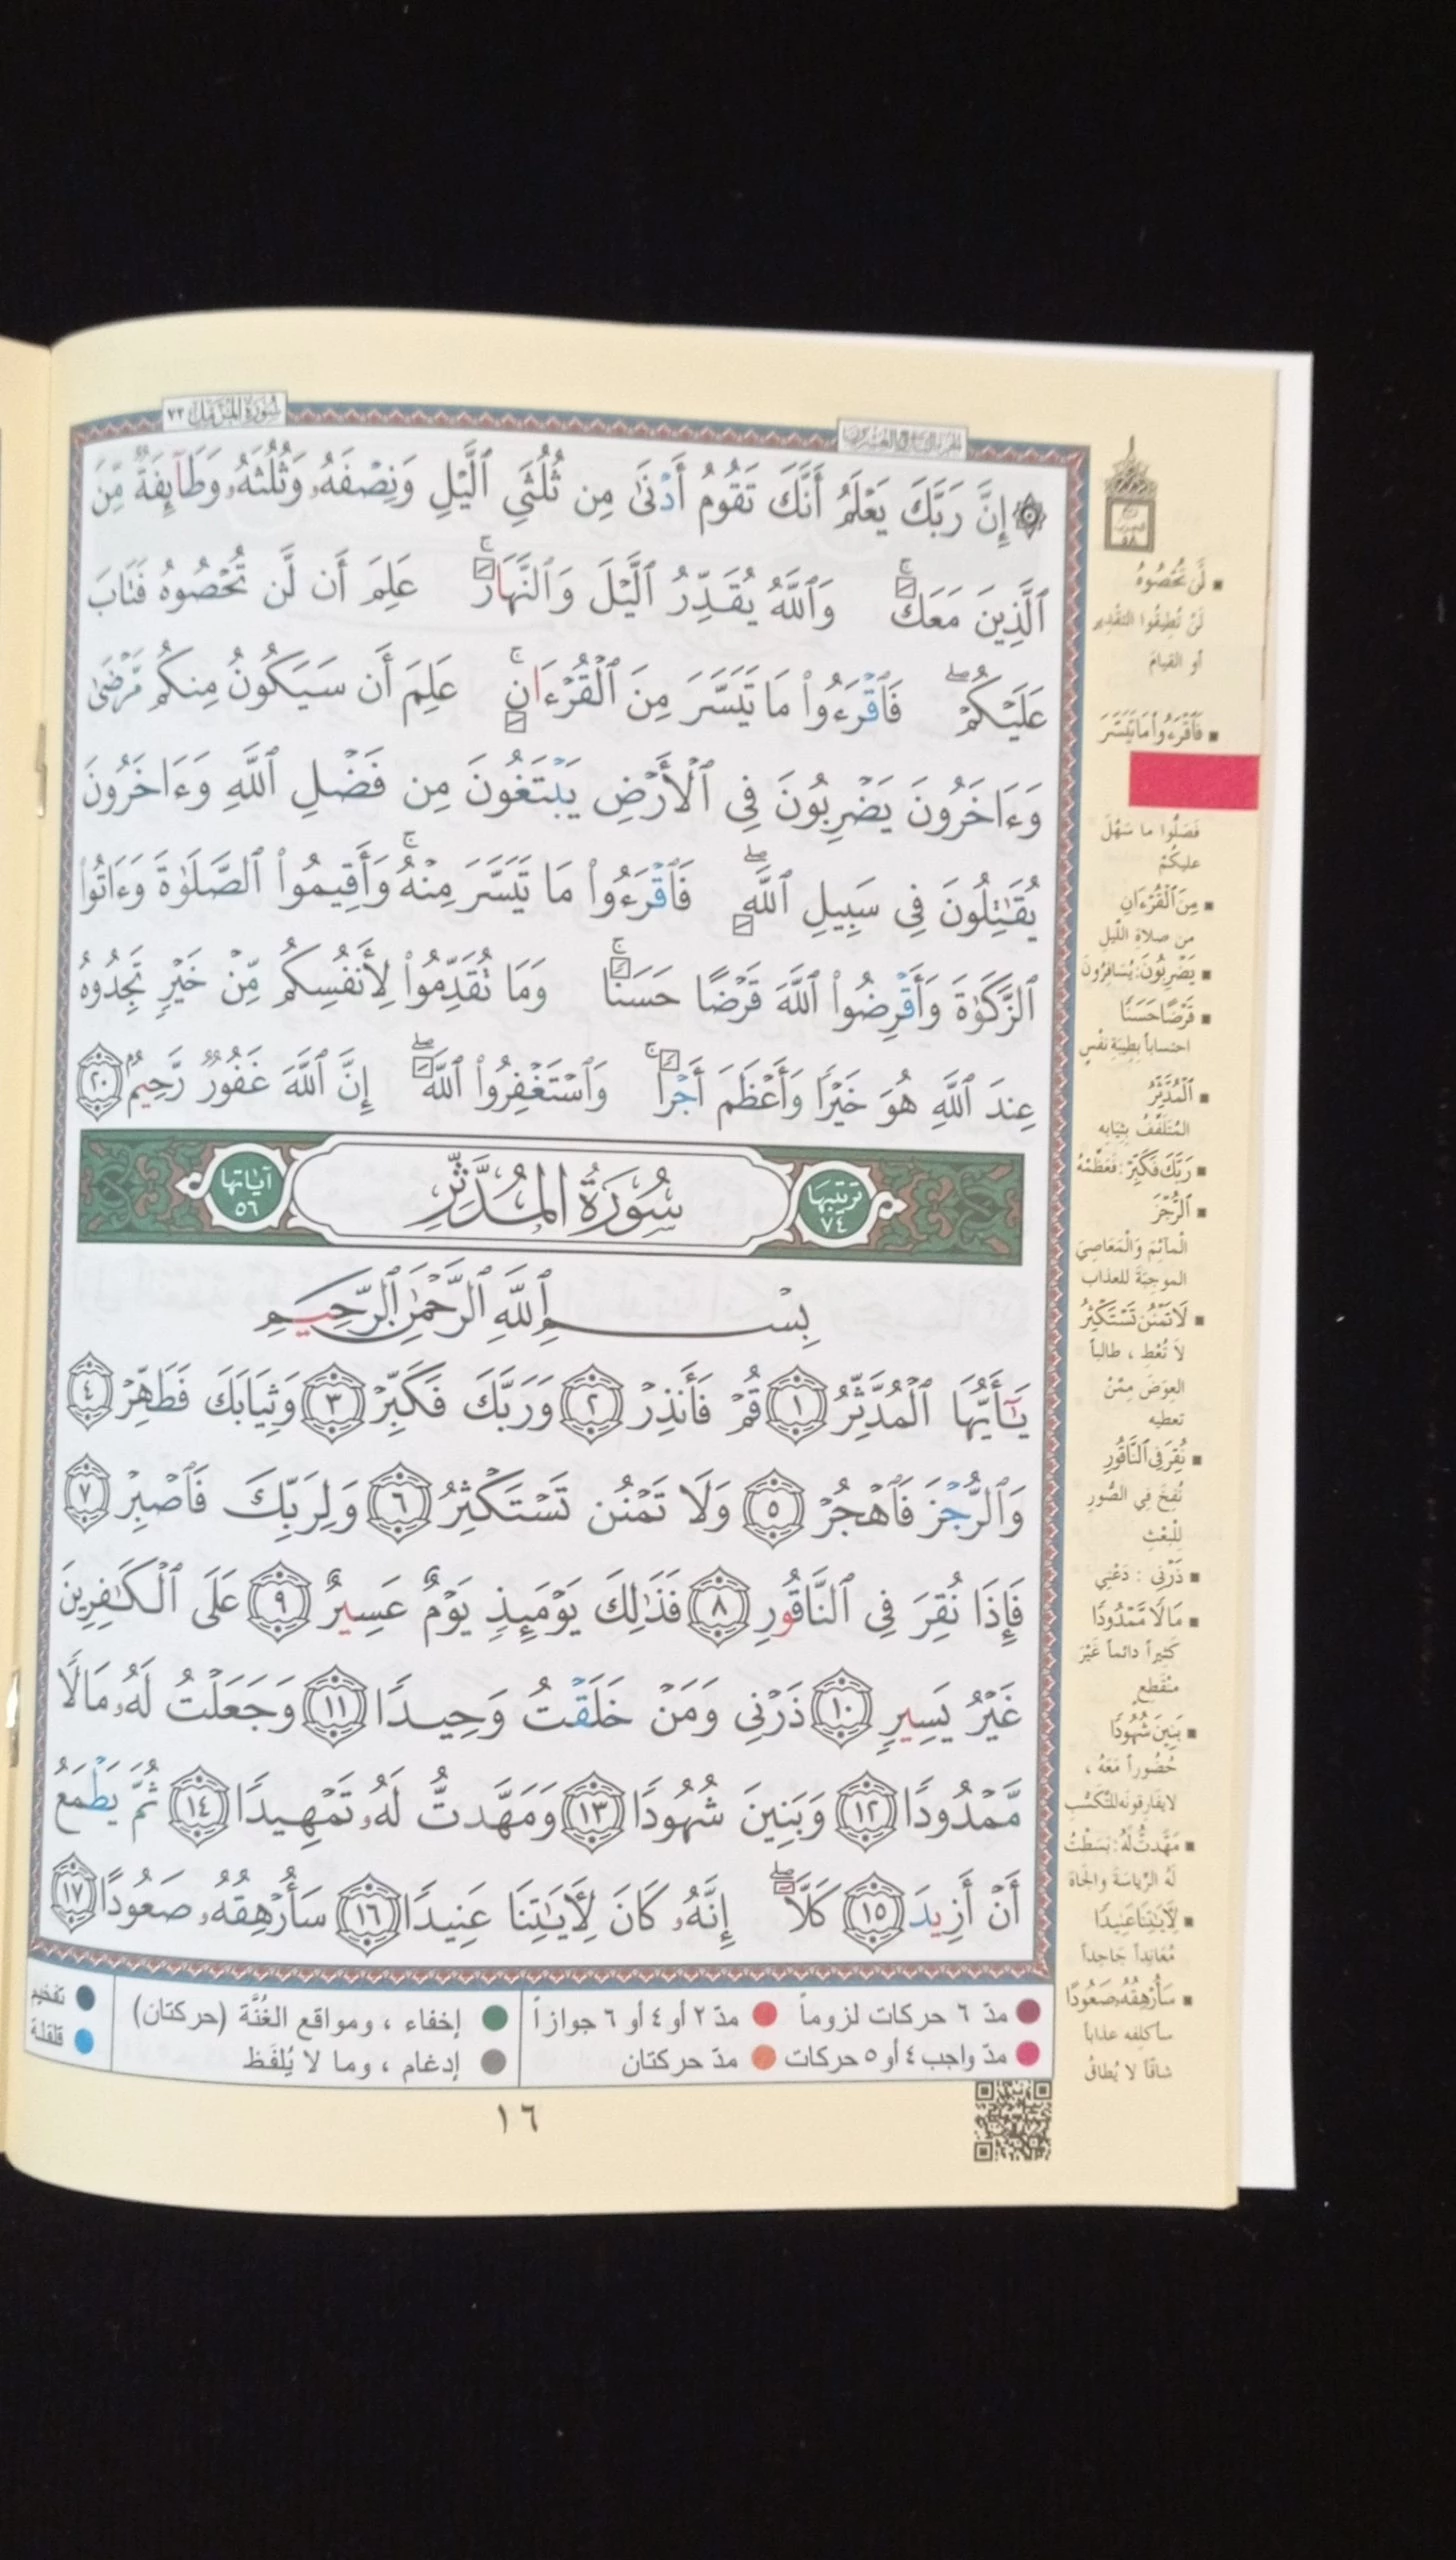 سُورَةُ المُزَّمِّل ٧٣
الجزء التاسع والعشرون
۞ إِنَّ رَبَّكَ يَعْلَمُ أَنَّكَ تَقُومُ أَدْنَىٰ مِن ثُلُثَيِ ٱلَّيْلِ وَنِصْفَهُۥ وَثُلُثَهُۥ وَطَآئِفَةٌ مِّنَ
ٱلَّذِينَ مَعَكَ ۚ وَٱللَّهُ يُقَدِّرُ ٱلَّيْلَ وَٱلنَّهَارَ ۚ عَلِمَ أَن لَّن تُحْصُوهُ فَتَابَ
عَلَيْكُمْ ۖ فَٱقْرَءُوا۟ مَا تَيَسَّرَ مِنَ ٱلْقُرْءَانِ ۚ عَلِمَ أَن سَيَكُونُ مِنكُم مَّرْضَىٰ
وَءَاخَرُونَ يَضْرِبُونَ فِى ٱلْأَرْضِ يَبْتَغُونَ مِن فَضْلِ ٱللَّهِ وَءَاخَرُونَ
يُقَٰتِلُونَ فِى سَبِيلِ ٱللَّهِ ۖ فَٱقْرَءُوا۟ مَا تَيَسَّرَ مِنْهُ ۚ وَأَقِيمُوا۟ ٱلصَّلَوٰةَ وَءَاتُوا۟
ٱلزَّكَوٰةَ وَأَقْرِضُوا۟ ٱللَّهَ قَرْضًا حَسَنًا ۚ وَمَا تُقَدِّمُوا۟ لِأَنفُسِكُم مِّنْ خَيْرٍ تَجِدُوهُ
عِندَ ٱللَّهِ هُوَ خَيْرًا وَأَعْظَمَ أَجْرًا ۚ وَٱسْتَغْفِرُوا۟ ٱللَّهَ ۖ إِنَّ ٱللَّهَ غَفُورٌ رَّحِيمٌ ٢٠
ترتيبها ٧٤ سُورَةُ المُدَّثِّرِ آياتها ٥٦
بِسْمِ ٱللَّهِ ٱلرَّحْمَٰنِ ٱلرَّحِيمِ
يَٰٓأَيُّهَا ٱلْمُدَّثِّرُ ١ قُمْ فَأَنذِرْ ٢ وَرَبَّكَ فَكَبِّرْ ٣ وَثِيَابَكَ فَطَهِّرْ ٤
وَٱلرُّجْزَ فَٱهْجُرْ ٥ وَلَا تَمْنُن تَسْتَكْثِرُ ٦ وَلِرَبِّكَ فَٱصْبِرْ ٧
فَإِذَا نُقِرَ فِى ٱلنَّاقُورِ ٨ فَذَٰلِكَ يَوْمَئِذٍ يَوْمٌ عَسِيرٌ ٩ عَلَى ٱلْكَٰفِرِينَ
غَيْرُ يَسِيرٍ ١٠ ذَرْنِى وَمَنْ خَلَقْتُ وَحِيدًا ١١ وَجَعَلْتُ لَهُۥ مَالًا
مَّمْدُودًا ١٢ وَبَنِينَ شُهُودًا ١٣ وَمَهَّدتُّ لَهُۥ تَمْهِيدًا ١٤ ثُمَّ يَطْمَعُ
أَنْ أَزِيدَ ١٥ كَلَّا ۖ إِنَّهُۥ كَانَ لِءَايَٰتِنَا عَنِيدًا ١٦ سَأُرْهِقُهُۥ صَعُودًا ١٧
ربع
الحزب
٥٨
لَّن تُحْصُوهُ
لَنْ تُطِيقُوا التقْدِير
أو القيامَ
فَٱقْرَءُوا۟ مَا تَيَسَّرَ
فَصَلُّوا ما سَهُلَ
عليكُمْ
مِنَ ٱلْقُرْءَانِ
من صلاةِ اللّيل
يَضْرِبُونَ: يُسَافِرُونَ
قَرْضًا حَسَنًا
احتساباً بِطِيبَةِ نَفْسٍ
ٱلْمُدَّثِّرُ
المُتَلَفِّفُ بِثِيَابِه
رَبَّكَ فَكَبِّرْ: فَعَظِّمْهُ
ٱلرُّجْزَ
الْمآثِمَ وَالْمَعَاصِيَ
الموجِبَةَ للعذاب
لَا تَمْنُن تَسْتَكْثِرُ
لاَ تُعْطِ ، طالباً
العِوَضَ مِمَّنْ
تعطيه
نُقِرَ فِى ٱلنَّاقُورِ
نُفِخَ فِي الصُّورِ
لِلْبَعْثِ
ذَرْنِى : دَعْنِي
مَالًا مَّمْدُودًا
كَثِيراً دائماً غَيْرَ
منْقَطِعٍ
بَنِينَ شُهُودًا
حُضُوراً مَعَهُ ،
لا يفَارِقونَه للتَّكَسُّبِ
مَهَّدتُّ لَهُ: بَسَطْتُ
لَهُ الرِّيَاسَةَ والجَاهَ
لِءَايَٰتِنَا عَنِيدًا
مُعَانِداً جَاحِداً
سَأُرْهِقُهُۥ صَعُودًا
سأكلِفه عذاباً
شاقّاً لا يُطاقُ
مدّ ٦ حركات لزوماً مدّ ٢ أو ٤ أو ٦ جوازاً إخفاء ، ومواقع الغُنَّة (حركتان) تفخيم
مدّ واجب ٤ أو ٥ حركات مدّ حركتان إدغام ، وما لا يُلفَظ قلقلة
١٦